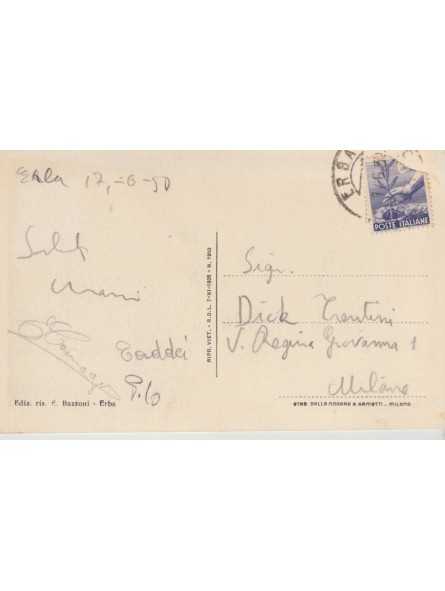 Erba 17,-6-50
ERBA
POSTE ITALIANE
Saluti
Taddei
RIPR. VIET. - R.D.L. 7-XI-1925 - N. 1950
Sigr.
Dick Trentini
V. Regina Giovanna 1
Milano
Ediz. ris. E. Bazzoni - Erba
STAB. DALLA NOGARE & ARMETTI - MILANO